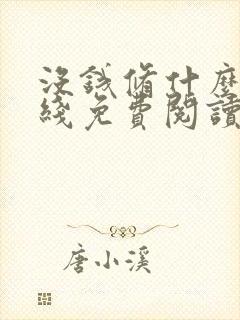 沒錢修什麼
綫免費閱讀
唐小溪